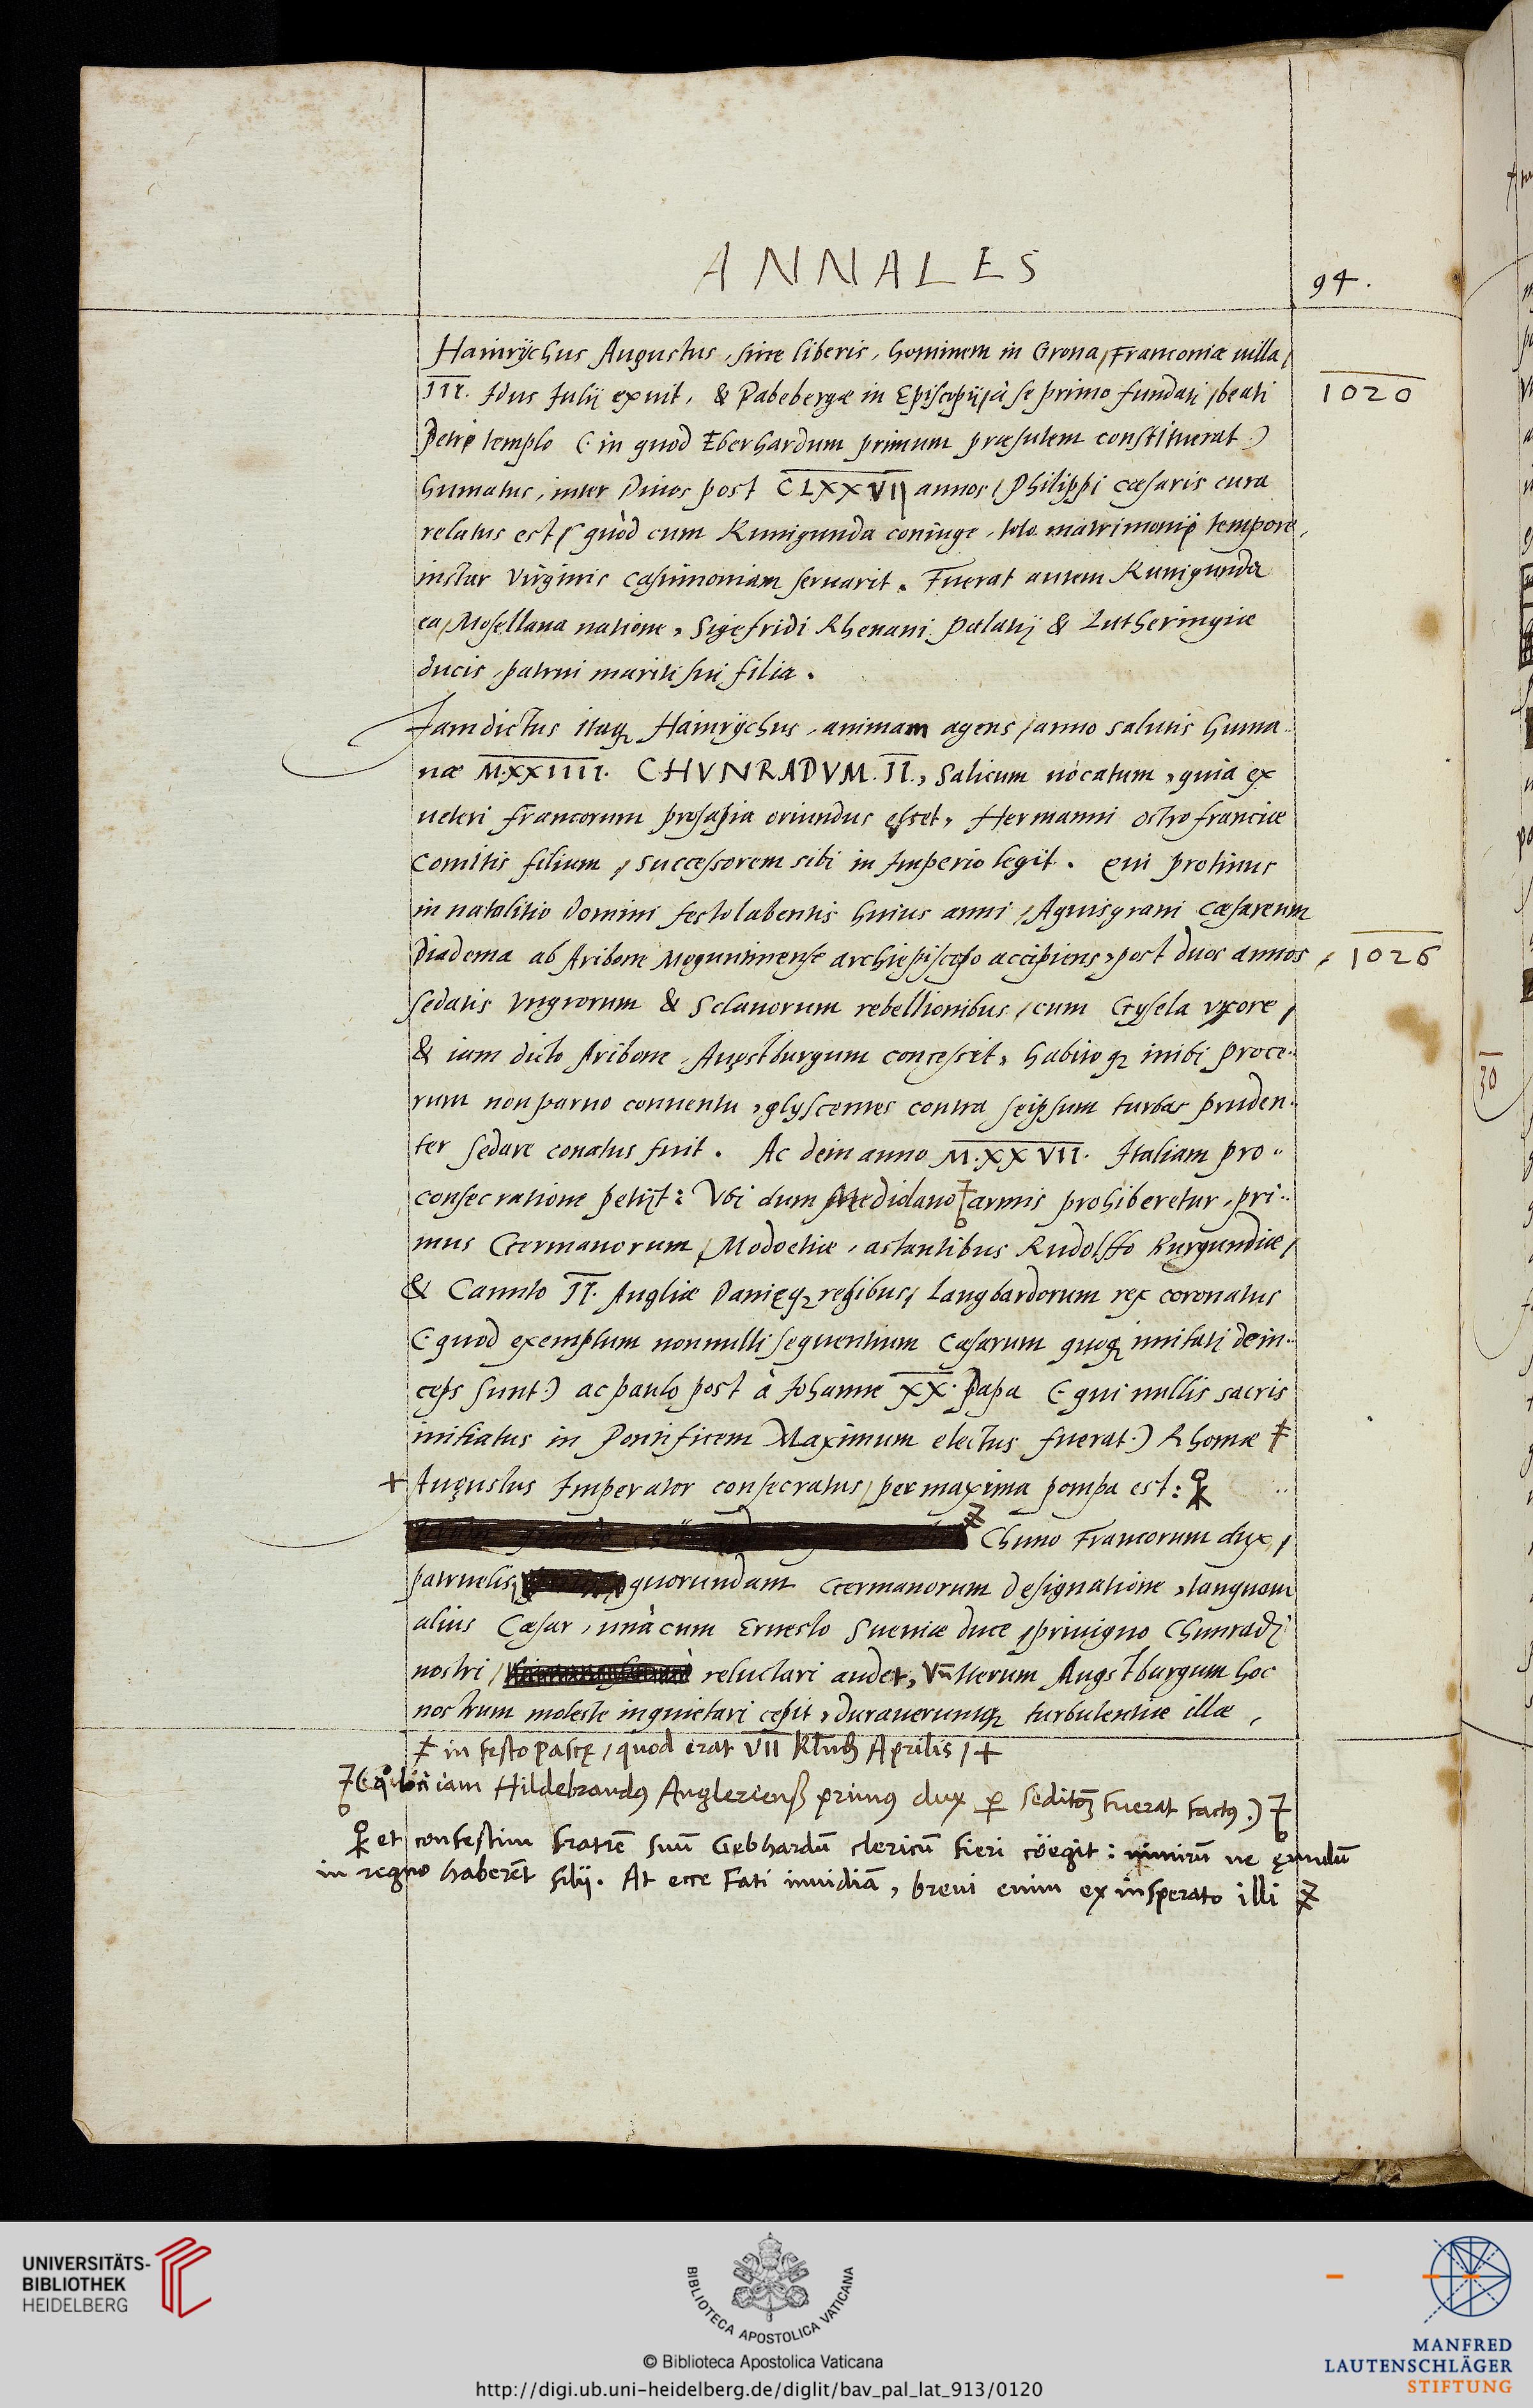 ANNALES
94.
Hainrÿchus Augustus, sine liberis, hominem in Grona, Franconiæ uilla,
III. Idus Julij exuit, & Pabebergæ in Episcopij, à se primo fundati, beati
1020
Petri templo (: in quod Eberhardum primum præsulem constituerat :)
humatus, inter Diuos post CLXXVII annos, Philippi Cæsaris cura
relatus est, quòd cum Kunigunda coniuge, toto matrimonij tempore,
instar Virginis castimoniam seruarit. Fuerat autem Kunigunda
ea, Mosellana natione, Sigefridi Rhenani Palatij & Lutheringiæ
ducis, patrui mariti sui filia.
Jamdictus itaq; Hainrÿchus, animam agens, anno salutis huma-
næ M.XXIIII. CHVNRADVM. II., Salicum uocatum, quia ex
ueteri francorum prosapia oriundus esset, Hermanni ostrofranciæ
Comitis filium, successorem sibi in Imperio legit. Qui protinus
in natalitio Domini festo labentis huius anni, Aquisgrani Cæsareum
Diadema ab Aribone Moguntinense archiepiscopo accipiens, post duos annos,
1026
sedatis Vngrorum & Sclauorum rebellionibus, cum Gysela vxore,
& iam dicto Aribone, Augstburgum concessit, habito q; inibi proce-
rum non paruo conuentu, glyscentes contra seipsum turbas pruden-
ter sedare conatus fuit. Ac dein anno M.XXVII. Italiam pro
consecratione petijt: Vbi dum Mediolano armis prohiberetur, pri-
mus Germanorum, Modoetiæ, astantibus Rudolffo Burgundiæ,
& Canuto II. Angliæ Danięq; regibus, Langbardorum rex coronatus
(: quod exemplum nonnulli sequentium Cæsarum quoq; imitati dein-
ceps sunt :) ac paulo post à Johanne XX. Papa (: qui nullis sacris
initiatus in Pontificem Maximum electus fuerat :) Rhomæ
+ Augustus Imperator consecratus, per maxima pompa est:
Chuno Francorum dux,
patruelis, quorundam Germanorum designatione, tanquam
alius Cæsar, unà cum Ernesto Sueuiæ duce, priuigno Chunradi
nostri, reluctari audet, Vn̄ iterum Augstburgum hoc
nostrum moleste inquietari cepit, duraueruntq; turbulentiæ illæ,
in festo Pascę, quod erat VII Kl̄nd Aprilis, +
iam Hildebrandus Angleriens̄ primus dux p seditōȝ fuerat factus.)
et confestim fratrē suū Gebhardū clericū fieri cöegit: nimirū ne ęmulū
in regno haberēt filij. At ecce Fati inuidiā, breui enim ex insperato illi
30
UNIVERSITÄTS-
BIBLIOTHEK
HEIDELBERG
BIBLIOTECA APOSTOLICA VATICANA
© Biblioteca Apostolica Vaticana
http://digi.ub.uni-heidelberg.de/diglit/bav_pal_lat_913/0120
MANFRED
LAUTENSCHLÄGER
STIFTUNG